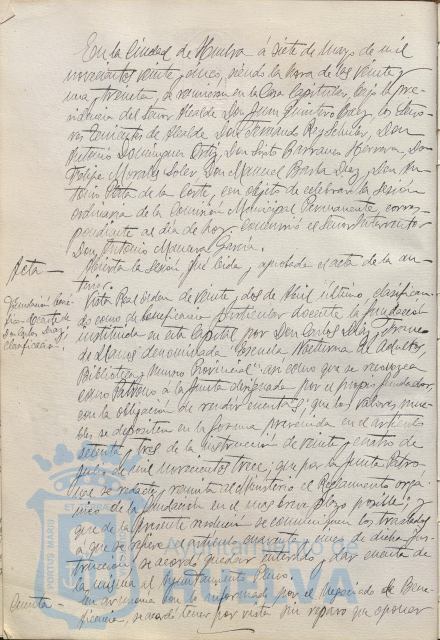 En la Ciudad de Huelva á siete de Mayo de mil
novecientos veinte y cinco, siendo la hora de las veinte y
una y treinta, se reunieron en la Casa Capitular, bajo la pre-
sidencia del Señor Alcalde Don Juan Quintero Baez, los Seño-
res Tenientes de Alcalde Don Fernando Rey, Don
Antonio Dominguez Ortiz, Don Sixto Barranco Herrera, Don
Felipe Morales Soler, Don Manuel Barba Diaz y Don An-
tonio de la Corte, con objeto de celebrar la sesión
ordinaria de la Comisión Municipal Permanente corres-
pondiente al día de hoy. Concurrió el Señor Interventor
Don Antonio García.
Acta —
Abierta la sesión fué leída y aprobada el acta de la an-
terior.
Fundación
Don Carlos Diaz,
clasificación
Vista Real orden de veinte y dos de Abril último clasifican-
do como de beneficencia particular docente la fundación
instituida en esta Capital por Don Carlos Diaz y Franco
de Llanos denominada "Escuela Nocturna de Adultos,
Biblioteca y Museo Provincial" así como que se reconozca
como Patrono á la Junta designada por el propio fundador,
con la obligación de rendir cuentas; que los valores mue-
bles se depositen en la forma prevenida en el artículo
setenta y tres de la instrucción de veinte y cuatro de
Julio de mil novecientos trece; que por la Junta Patro-
nal se redacte y remita al Ministerio el Reglamento orgá-
nico de la fundación en el mas breve plazo posible; y
que de la presente resolución se comuniquen los traslados
a que se refiere el artículo cuarenta y cinco de dicha Ins-
trucción, se acordó quedar enterado y dar cuenta de
la misma al Ayuntamiento Pleno.
Cuenta —
En armonía con lo informado por el Negociado de Bene-
ficencia, se acordó tener por vista sin reparo que oponer
Ayuntamiento de
HUELVA
PORTUS MARIS